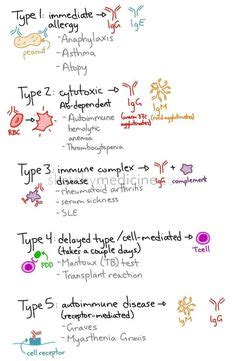 Type 1: immediate → IgG IgE
allergy
- Anaphylaxis
- Asthma
- Atopy
peanut
Type 2: cytotoxic → IgG IgM
Ab-dependent
- Autoimmune
hemolytic
anemia
- Thrombocytopenia
RBC
Type 3: immune complex → IgG + complement
disease
- rheumatoid arthritis
- serum sickness
- SLE
Type 4: delayed type/cell-mediated → Tcell
(takes a couple days)
- Mantoux (TB) test
- Transplant reaction
PPD
Type 5: autoimmune disease → IgM IgG
(receptor-mediated)
- Graves
- Myasthenia Gravis
cell receptor